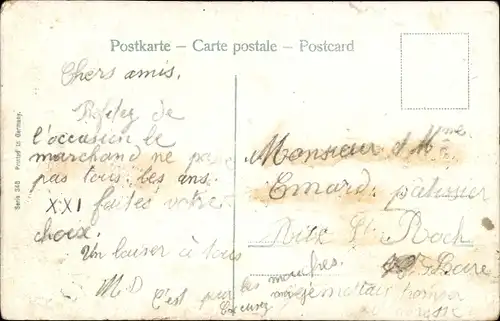 Postkarte – Carte postale – Postcard
Chers amis,
Profitez de
l'occasion le
marchand ne passe
pas tous les ans.
XXI faites votre
choix.
Un baiser à tous
M.D
C'est pour les mouches.
Excusez
Monsieur & Mme
Emard pâtissier
Rue St Roch
Loire
Serie 248 Printed in Germany.